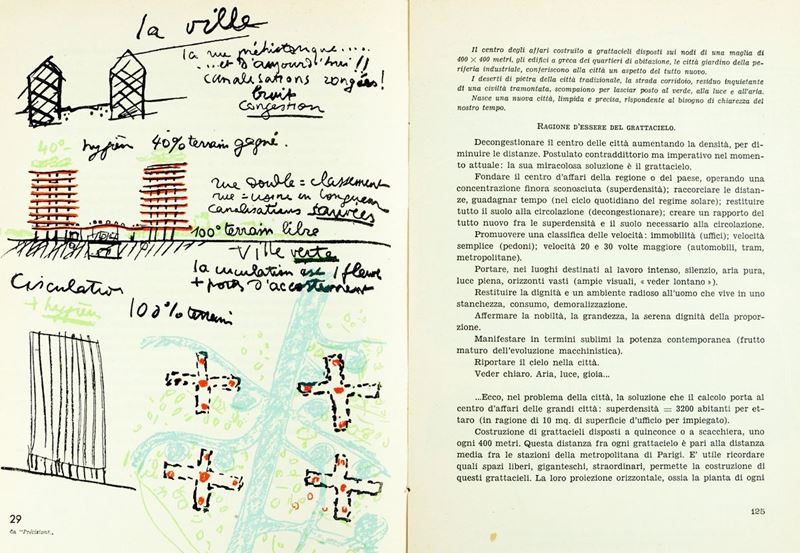 la ville
la rue préhistorique.....
...et d'aujourd'hui !!
canalisations rongées!
bruit
congestion
40%
hygièn 40% terrain gagné.
rue double = classement
rue = usine en longueur
canalisations sauvées
100% terrain libre
Ville verte
la circulation est 1 fleuve
+ ports d'accostement
Circulation
+ hygièn
100% terrain
29
da "Précisions„
Il centro degli affari costruito a grattacieli disposti sui nodi di una maglia di
400 × 400 metri, gli edifici a greca dei quartieri di abitazione, le città giardino della pe-
riferia industriale, conferiscono alla città un aspetto del tutto nuovo.
I deserti di pietra della città tradizionale, la strada corridoio, residuo inquietante
di una civiltà tramontata, scompaiono per lasciar posto al verde, alla luce e all'aria.
Nasce una nuova città, limpida e precisa, rispondente al bisogno di chiarezza del
nostro tempo.
RAGIONE D'ESSERE DEL GRATTACIELO.
Decongestionare il centro delle città aumentando la densità, per di-
minuire le distanze. Postulato contraddittorio ma imperativo nel momen-
to attuale: la sua miracolosa soluzione è il grattacielo.
Fondare il centro d'affari della regione o del paese, operando una
concentrazione finora sconosciuta (superdensità); raccorciare le distan-
ze, guadagnar tempo (nel ciclo quotidiano del regime solare); restituire
tutto il suolo alla circolazione (decongestionare); creare un rapporto del
tutto nuovo fra le superdensità e il suolo necessario alla circolazione.
Promuovere una classifica delle velocità: immobilità (uffici); velocità
semplice (pedoni); velocità 20 e 30 volte maggiore (automobili, tram,
metropolitane).
Portare, nei luoghi destinati al lavoro intenso, silenzio, aria pura,
luce piena, orizzonti vasti (ampie visuali, « veder lontano »).
Restituire la dignità e un ambiente radioso all'uomo che vive in uno
stanchezza, consumo, demoralizzazione.
Affermare la nobiltà, la grandezza, la serena dignità della propor-
zione.
Manifestare in termini sublimi la potenza contemporanea (frutto
maturo dell'evoluzione macchinistica).
Riportare il cielo nella città.
Veder chiaro. Aria, luce, gioia...
...Ecco, nel problema della città, la soluzione che il calcolo porta al
centro d'affari delle grandi città: superdensità = 3200 abitanti per et-
taro (in ragione di 10 mq. di superficie d'ufficio per impiegato).
Costruzione di grattacieli disposti a quinconce o a scacchiera, uno
ogni 400 metri. Questa distanza fra ogni grattacielo è pari alla distanza
media fra le stazioni della metropolitana di Parigi. E' utile ricordare
quali spazi liberi, giganteschi, straordinari, permette la costruzione di
questi grattacieli. La loro proiezione orizzontale, ossia la pianta di ogni
125